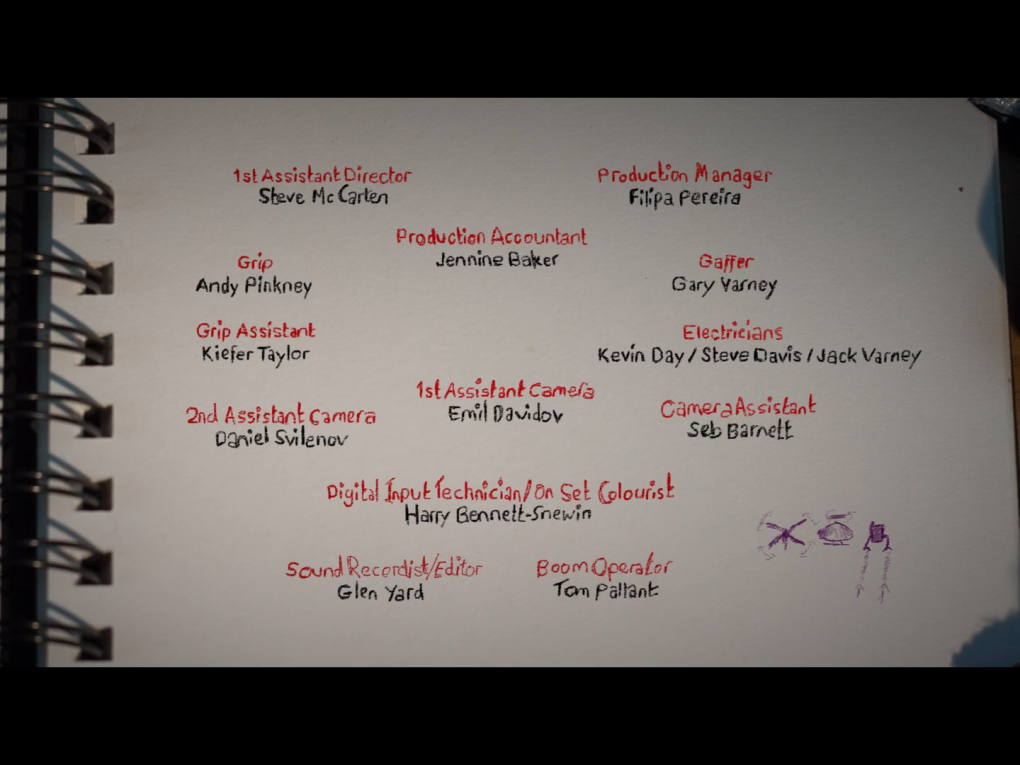 1st Assistant Director
Steve McCarten
Production Manager
Filipa Pereira
Production Accountant
Jennine Baker
Grip
Andy Pinkney
Gaffer
Gary Varney
Grip Assistant
Kiefer Taylor
Electricians
Kevin Day / Steve Davis / Jack Varney
1st Assistant Camera
Emil Davidov
2nd Assistant Camera
Daniel Svilenov
Camera Assistant
Seb Barnett
Digital Input Technician/On Set Colourist
Harry Bennett-Snewin
Sound Recordist/Editor
Glen Yard
Boom Operator
Tom Pallant